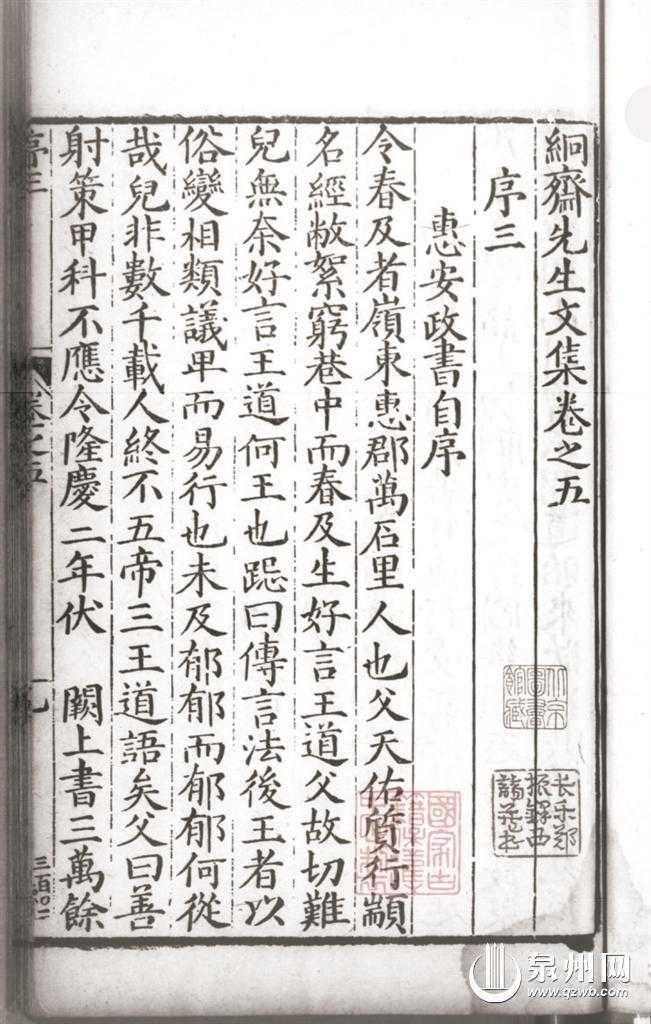 絅齋先生文集卷之五
序三
惠安政書自序
令春及者嶺東惠郡萬石里人也父天佑質行顓
名經敝絮窮巷中而春及生好言王道父故切難
兒無奈好言王道何王也跽曰傳言法後王者以
俗變相類議卑而易行也未及郁郁而郁郁何從
哉兒非數千載人終不五帝三王道語矣父曰善
射策甲科不應令隆慶二年伏 闕上書三萬餘
序三
卷之五
九
三百四二
北京圖書館藏
長樂鄭振鐸西諦藏書
泉州网
www.qzwb.com